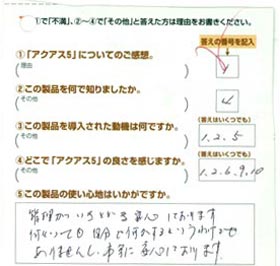 ①で「不満」、②～④で「その他」と答えた方は理由をお書きください。
答えの番号を記入
①「アクアス5」についてのご感想。
(理由
)
4
②この製品を何で知りましたか。
(その他
)
4
③この製品を導入された動機は何ですか。
(答えはいくつでも)
(その他
)
1.2.5
④どこで「アクアス5」の良さを感じますか。
(答えはいくつでも)
(その他
)
1.2.6.9.10
⑤この製品の使い心地はいかがですか。
管理がいきとどき安心しております
ありませんし、本当に安心しております